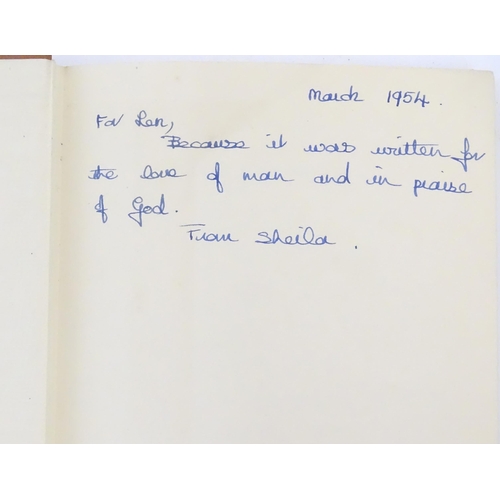 March 1954.
For Len,
Because it was written for
the love of man and in praise
of God.
From Sheila.